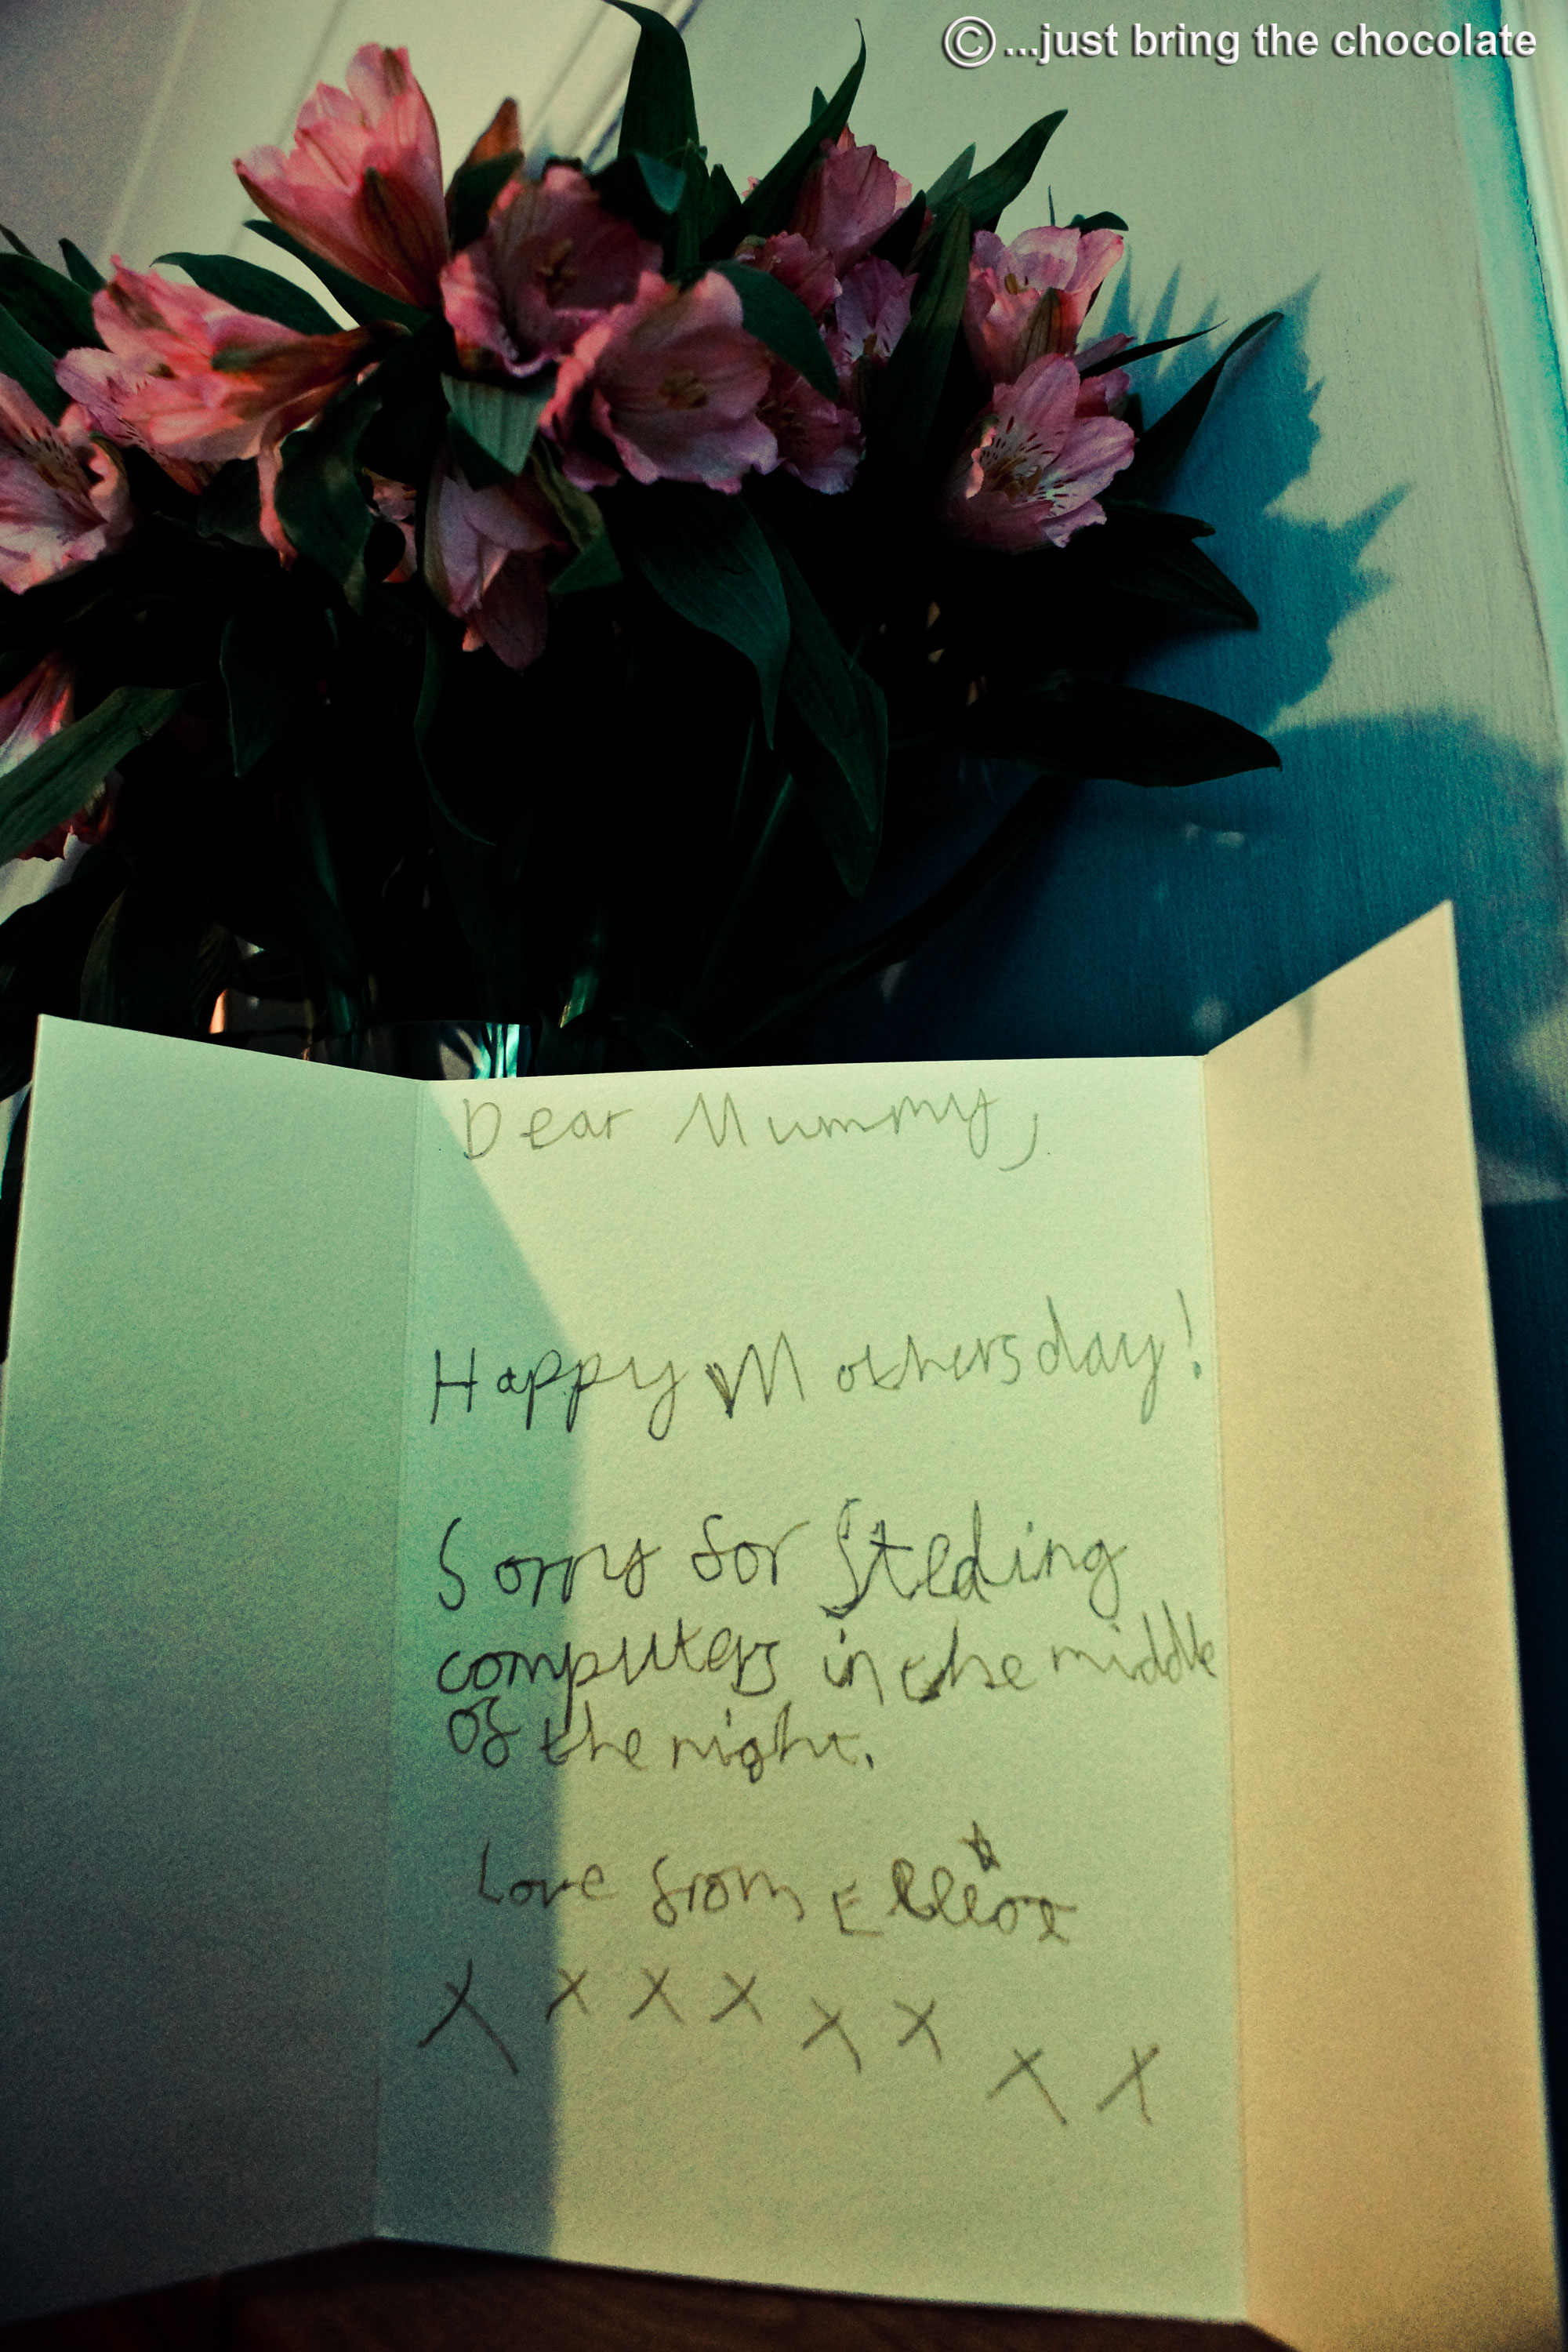 © ...just bring the chocolate
Dear Mummy,
Happy Mothersday!
Sorry for Stealing
computers in the middle
of the night.
Love from Elliot
x x x x x x x x